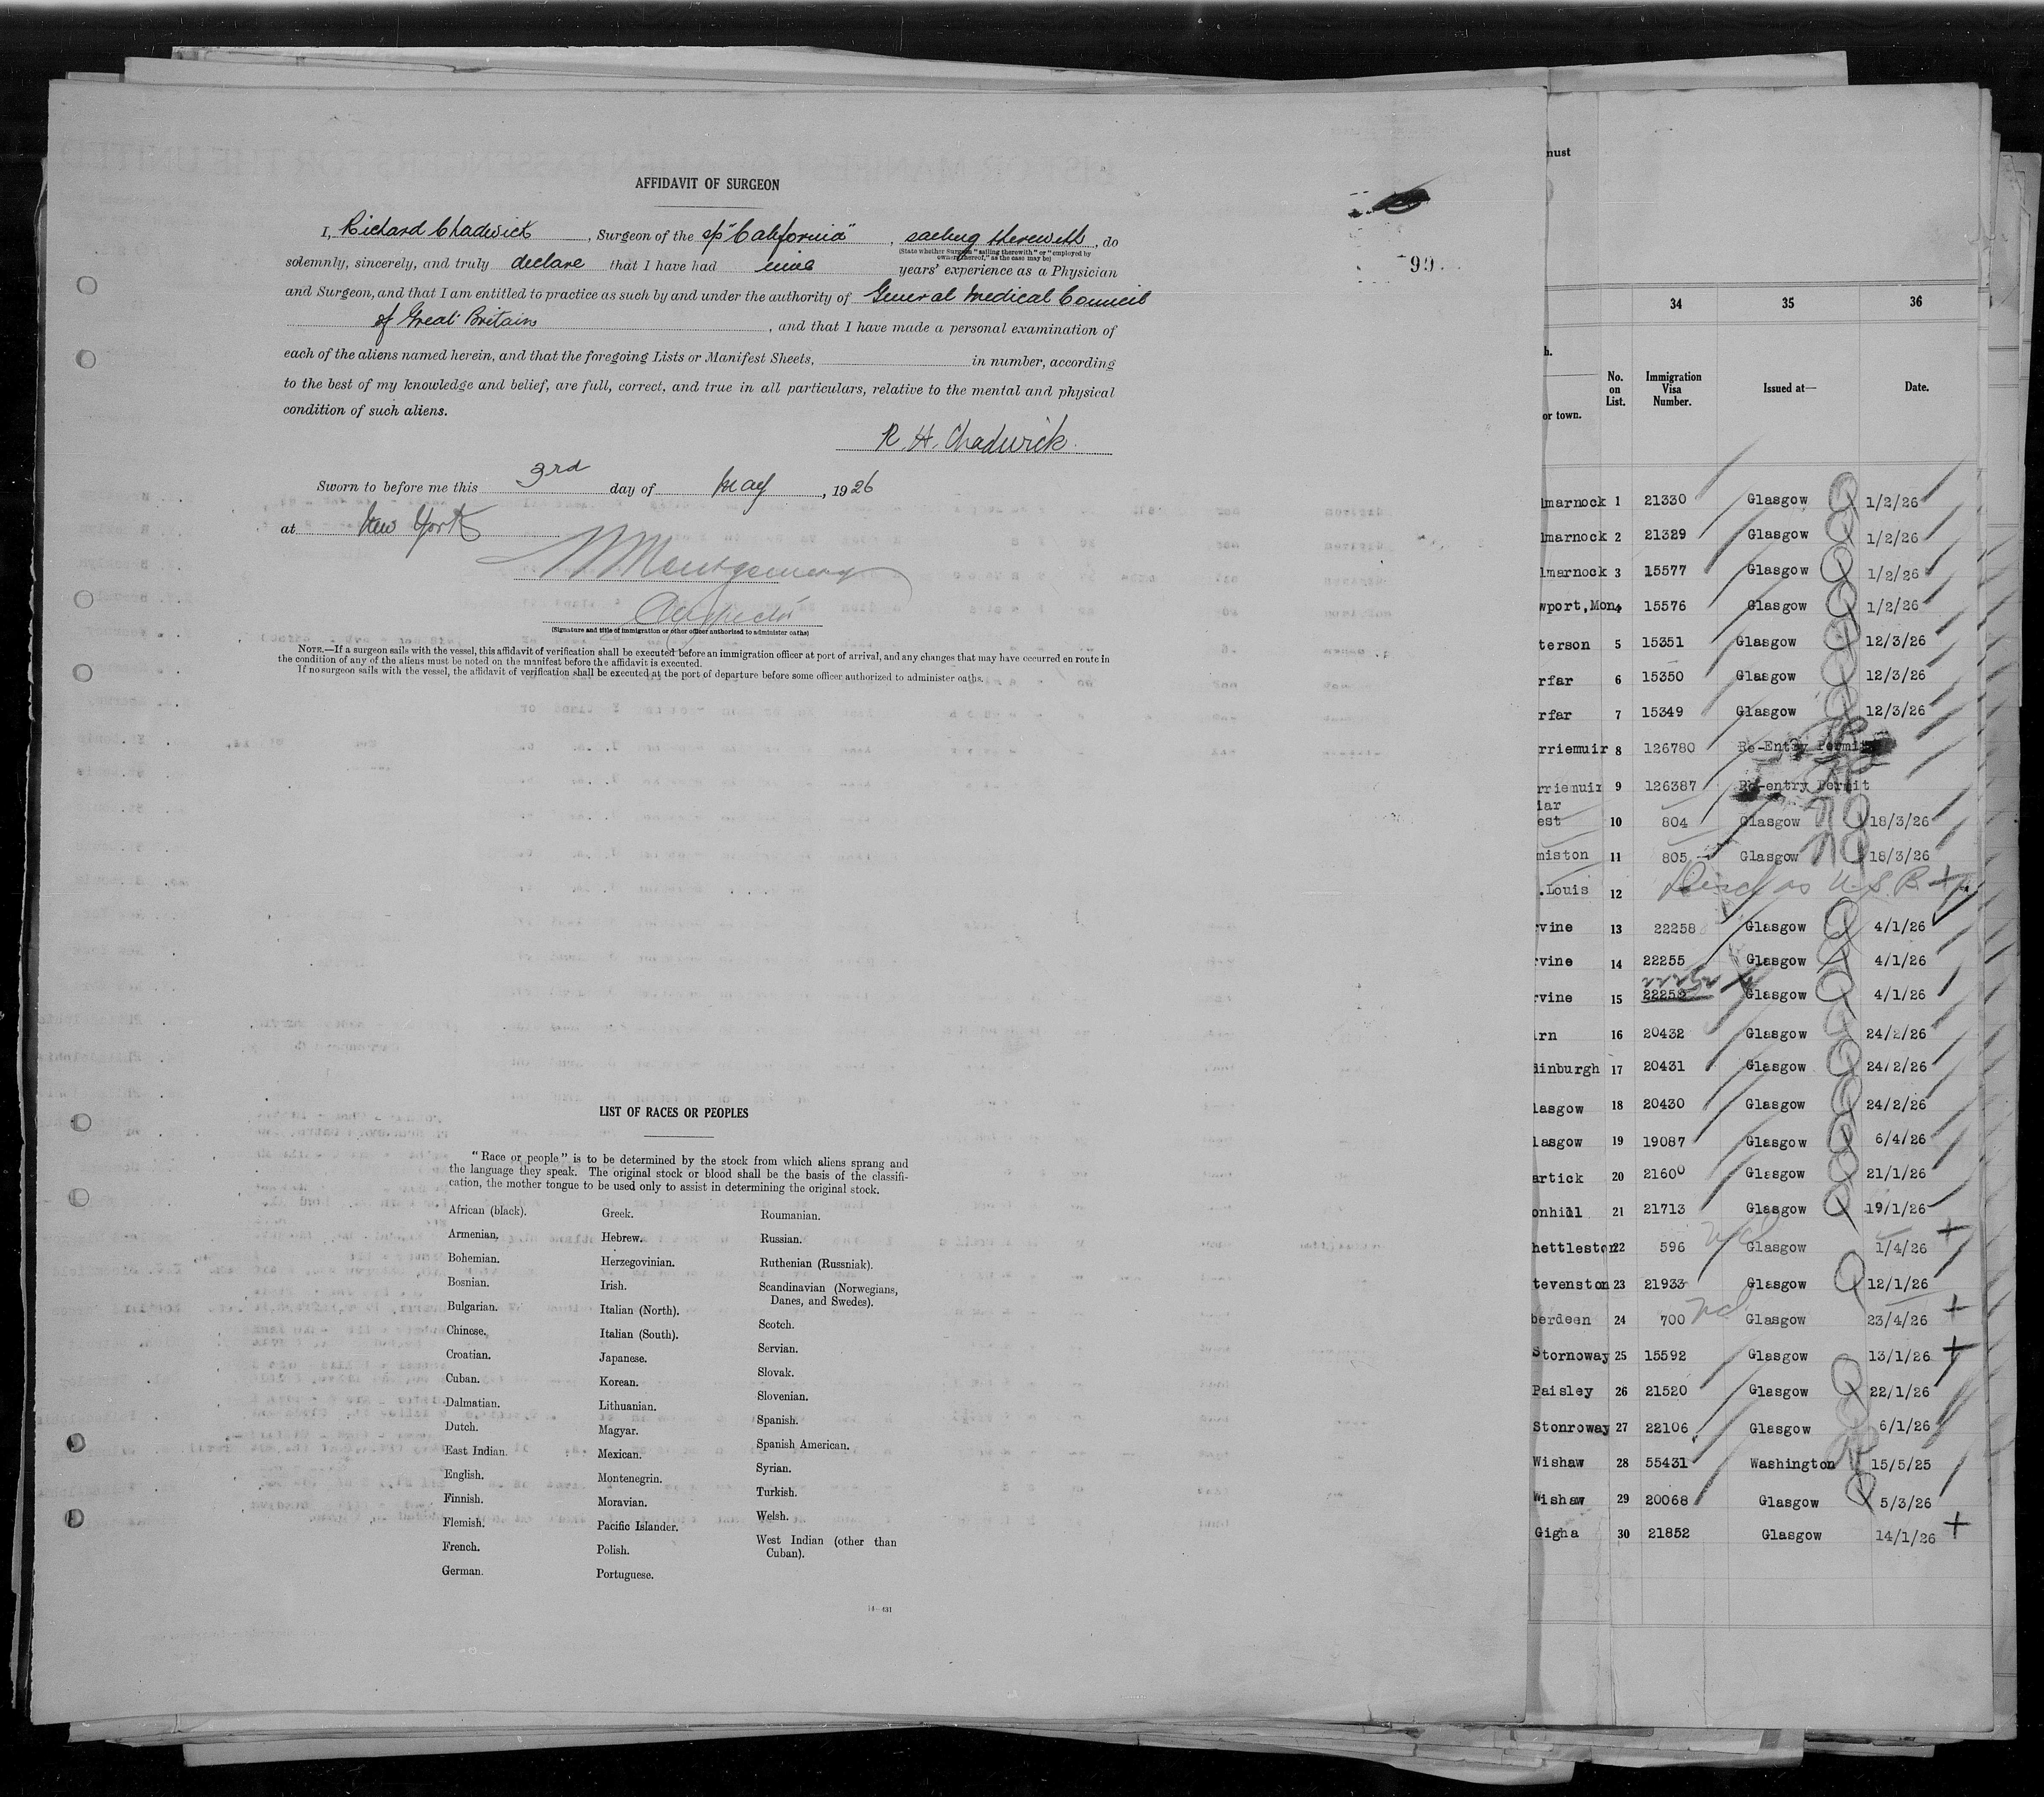 AFFIDAVIT OF SURGEON
I, Richard Chadwick, Surgeon of the s/s "California", sailing therewith, do
(State whether Surgeon "sailing therewith" or "employed by
owners thereof," as the case may be)
solemnly, sincerely, and truly declare that I have had nine years' experience as a Physician
and Surgeon, and that I am entitled to practice as such by and under the authority of General Medical Council
of Great Britain, and that I have made a personal examination of
each of the aliens named herein, and that the foregoing Lists or Manifest Sheets, in number, according
to the best of my knowledge and belief, are full, correct, and true in all particulars, relative to the mental and physical
condition of such aliens.
R. H. Chadwick.
Sworn to before me this 3rd day of May, 1926
at New York
Montgomery
Inspector
(Signature and title of immigration or other officer authorized to administer oaths)
NOTE.—If a surgeon sails with the vessel, this affidavit of verification shall be executed before an immigration officer at port of arrival, and any changes that may have occurred en route in
the condition of any of the aliens must be noted on the manifest before the affidavit is executed.
If no surgeon sails with the vessel, the affidavit of verification shall be executed at the port of departure before some officer authorized to administer oaths.
99
LIST OF RACES OR PEOPLES
"Race or people" is to be determined by the stock from which aliens sprang and
the language they speak. The original stock or blood shall be the basis of the classifi-
cation, the mother tongue to be used only to assist in determining the original stock.
African (black).
Armenian.
Bohemian.
Bosnian.
Bulgarian.
Chinese.
Croatian.
Cuban.
Dalmatian.
Dutch.
East Indian.
English.
Finnish.
Flemish.
French.
German.
Greek.
Hebrew.
Herzegovinian.
Irish.
Italian (North).
Italian (South).
Japanese.
Korean.
Lithuanian.
Magyar.
Mexican.
Montenegrin.
Moravian.
Pacific Islander.
Polish.
Portuguese.
Roumanian.
Russian.
Ruthenian (Russniak).
Scandinavian (Norwegians,
Danes, and Swedes).
Scotch.
Servian.
Slovak.
Slovenian.
Spanish.
Spanish American.
Syrian.
Turkish.
Welsh.
West Indian (other than
Cuban).
14—431
must
34 35 36
h.
or town.
No.
on
List.
Immigration
Visa
Number.
Issued at—
Date.
lmarnock 1 21330 Glasgow 1/2/26
lmarnock 2 21329 Glasgow 1/2/26
lmarnock 3 15577 Glasgow 1/2/26
wport,Mon 4 15576 Glasgow 1/2/26
terson 5 15351 Glasgow 12/3/26
rfar 6 15350 Glasgow 12/3/26
rfar 7 15349 Glasgow 12/3/26
rriemuir 8 126780 Re-Entry Permit
rriemuir 9 126387 Re-entry Permit
iar
est 10 804 Glasgow 18/3/26
miston 11 805 Glasgow 18/3/26
.Louis 12 U.S.B.
rvine 13 22258 Glasgow 4/1/26
rvine 14 22255 Glasgow 4/1/26
rvine 15 Glasgow 4/1/26
irn 16 20432 Glasgow 24/2/26
dinburgh 17 20431 Glasgow 24/2/26
lasgow 18 20430 Glasgow 24/2/26
lasgow 19 19087 Glasgow 6/4/26
artick 20 21600 Glasgow 21/1/26
onhill 21 21713 Glasgow 19/1/26
hettleston 22 596 Glasgow 1/4/26
tevenston 23 21933 Glasgow 12/1/26
berdeen 24 700 Glasgow 23/4/26
Stornoway 25 15592 Glasgow 13/1/26
Paisley 26 21520 Glasgow 22/1/26
Stonroway 27 22106 Glasgow 6/1/26
Wishaw 28 55431 Washington 15/5/25
Wishaw 29 20068 Glasgow 5/3/26
Gigha 30 21852 Glasgow 14/1/26